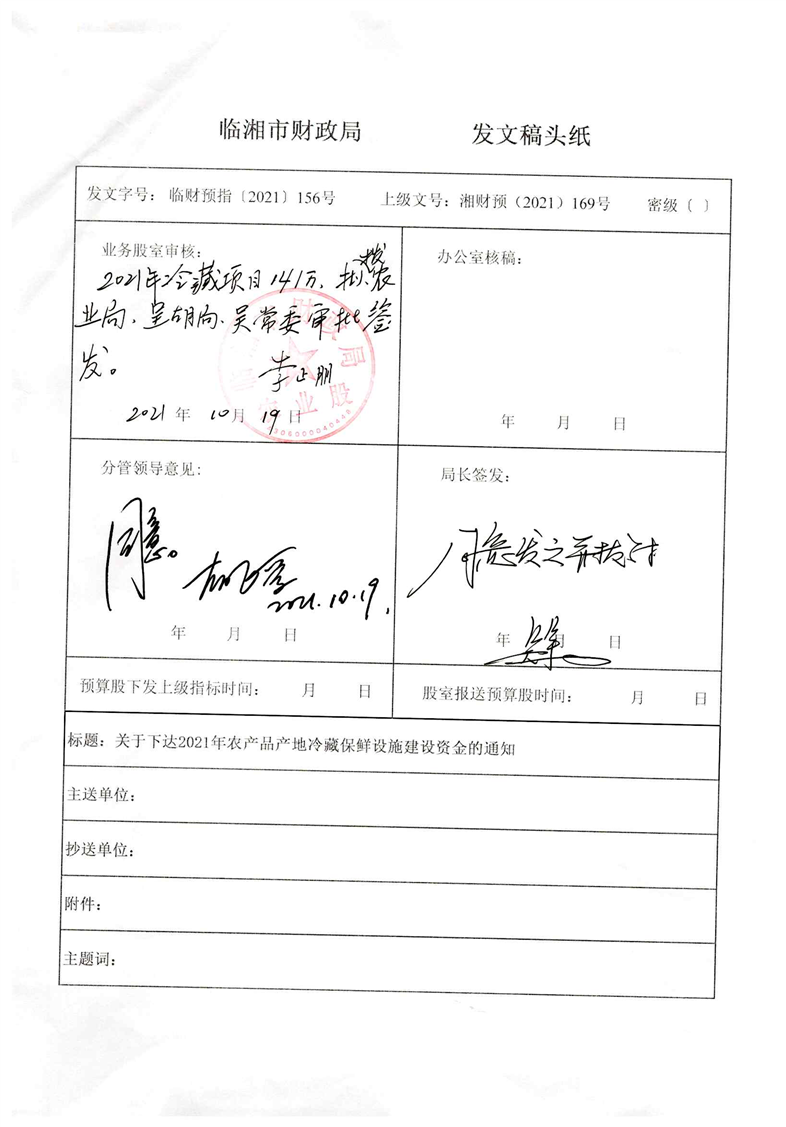 临湘市财政局 发文稿头纸
发文字号： 临财预指〔2021〕156号 上级文号：湘财预（2021）169号 密级〔 〕
业务股室审核：
2021年冷藏项目141万，拟拨农
业局，呈胡局、吴常委审批签
发。
李正朋
2021年 10月 19日
财政局
业股
4306000040448
办公室核稿：
年 月 日
分管领导意见：
同意。
2021.10.19.
年 月 日
局长签发：
同意发文并
年 月 日
预算股下发上级指标时间： 月 日
股室报送预算股时间： 月 日
标题：关于下达2021年农产品产地冷藏保鲜设施建设资金的通知
主送单位：
抄送单位：
附件：
主题词：